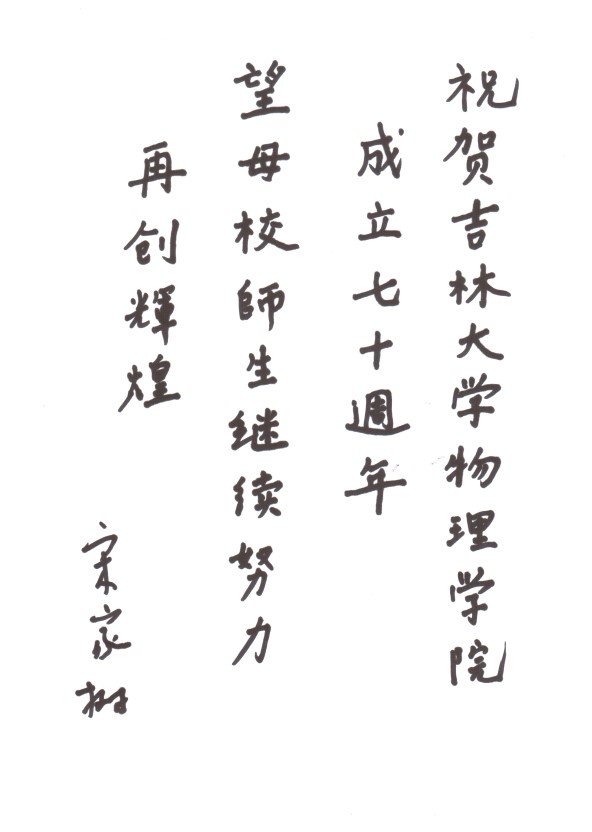 祝贺吉林大学物理学院
成立七十週年
望母校師生继续努力
再创輝煌
宋家树